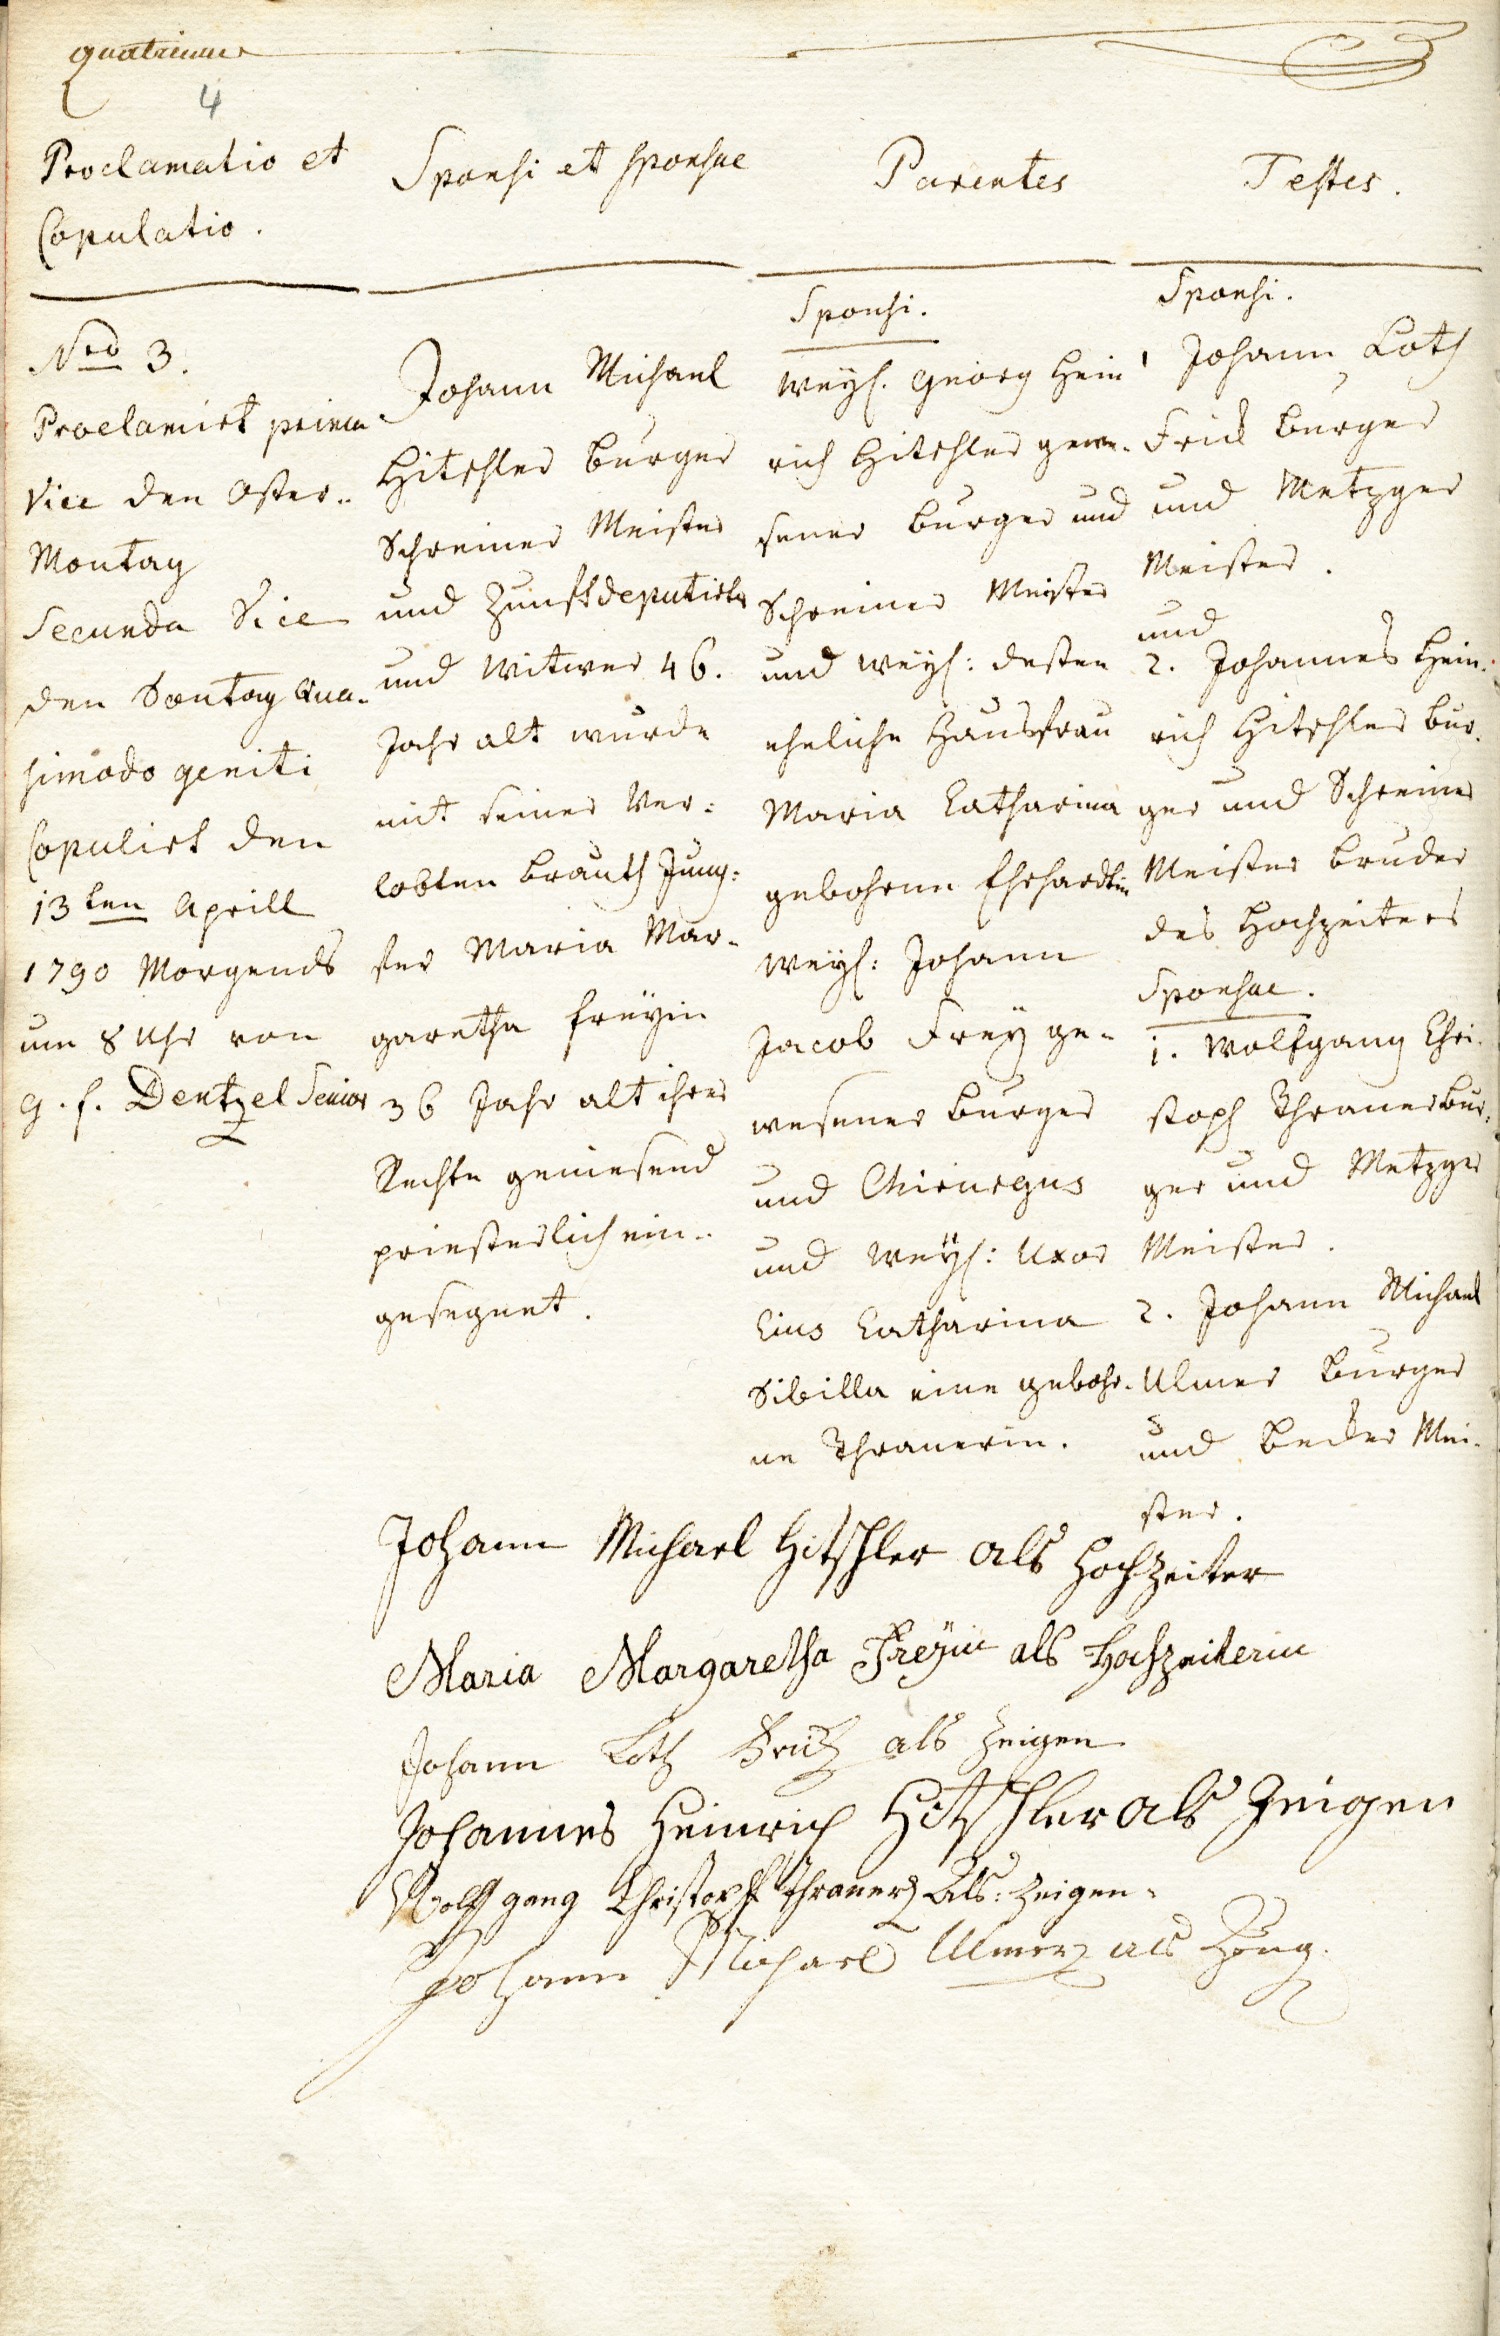 quatrieme
4
Proclamatio et
Copulatio.
Nro 3.
Proclamirt prima
Vice den Oster-
Montag
Secunda Vice
den Sontag Qua-
simodo geniti
Copulirt den
13ten Aprill
1790 Morgends
um 8 Uhr von
G. F. Dentzel Senior
Sponsi et sponsae
Johann Michael
Hitschler burger
Schreiner Meister
und Zunftdeputirter
und Witwer 46.
Jahr alt wurde
mit seiner Ver-
lobten brauth Jung-
fer Maria Mar-
garetha freyin
36 Jahr alt ihrer
Rechte geniesend
priesterlich ein-
gesegnet.
Parentes
Sponsi.
weyl. Georg Hein
rich Hitschler gewe-
sener burger und
Schreiner Meister
und weyl: desten
eheliche Hausfrau
Maria Catharina
gebohrne Ehrhardtin
weyl: Johann
Jacob Frey ge-
wesener burger
und Chirurgus
und weyl: Uxor
Eius Catharina
Sibilla eine gebohr-
ne Thranerin.
Testes.
Sponsi.
1 Johann Loth
Frick burger
und Metzger
Meister.
und
2. Johannes Hein-
rich Hitschler bur-
ger und Schreiner
Meister bruder
des Hochzeiters
Sponsae.
1. Wolfgang Chri-
stoph Thraner bur-
ger und Metzger
Meister.
2. Johann Michael
Ulmer burger
und becker Mei-
ster.
Johann Michael Hitschler als Hochzeiter
Maria Margaretha Freyin als Hochzeiterin
Johann Loth Frick als Zeigen
Johannes Heinrich Hitschler als Zeigen
Wolfgang Christoph Thraner Als: Zeigen.
Johann Michael Ulmer als Zeug.